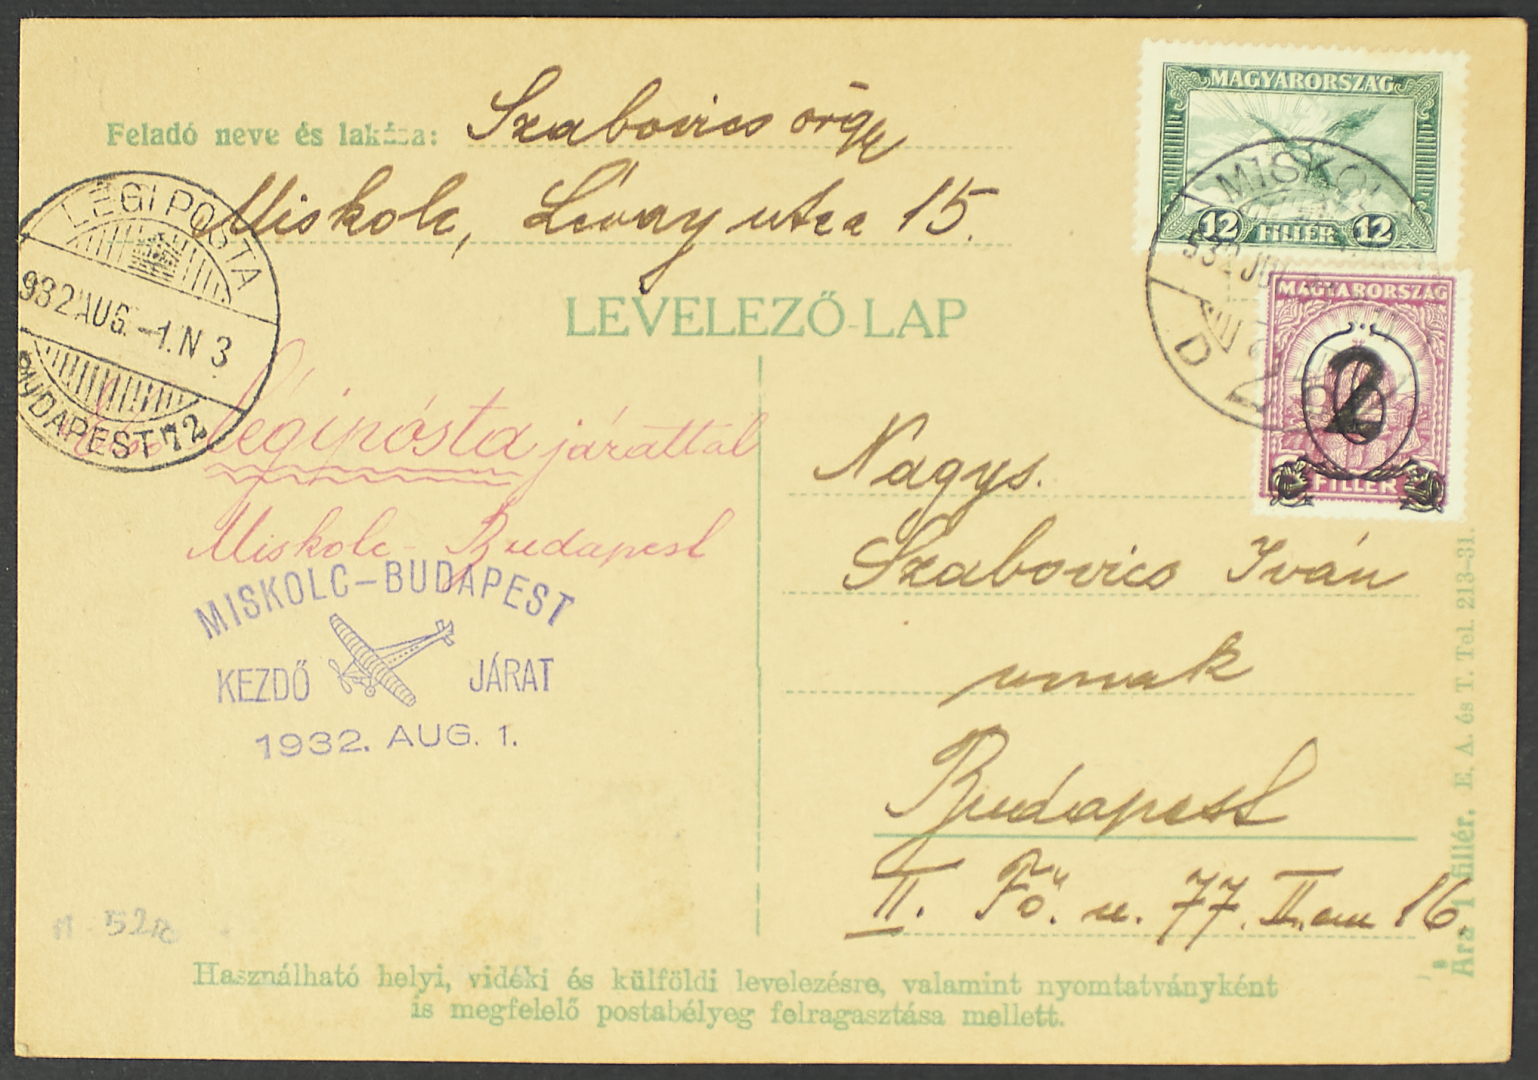 Feladó neve és lakása: Szabovics őrgy
Miskolc, Lévay utca 15.
LEVELEZŐ-LAP
MAGYARORSZÁG
12 FILLÉR 12
MISKOLC
932 JUL
D
MAGYARORSZÁG
2
FILLÉR
LÉGI POSTA
932 AUG. -1. N 3
BUDAPEST 72
Légipósta járattal
Miskolc - Budapest
MISKOLC-BUDAPEST
KEZDŐ JÁRAT
1932. AUG. 1.
Nagys.
Szabovics Iván
urnak
Budapest
II. Fő u. 77. II. em 16.
52
Használható helyi, vidéki és külföldi levelezésre, valamint nyomtatványként
is megfelelő postabélyeg felragasztása mellett.
Ára 1 fillér. E. A. és T. Tel. 213-31.